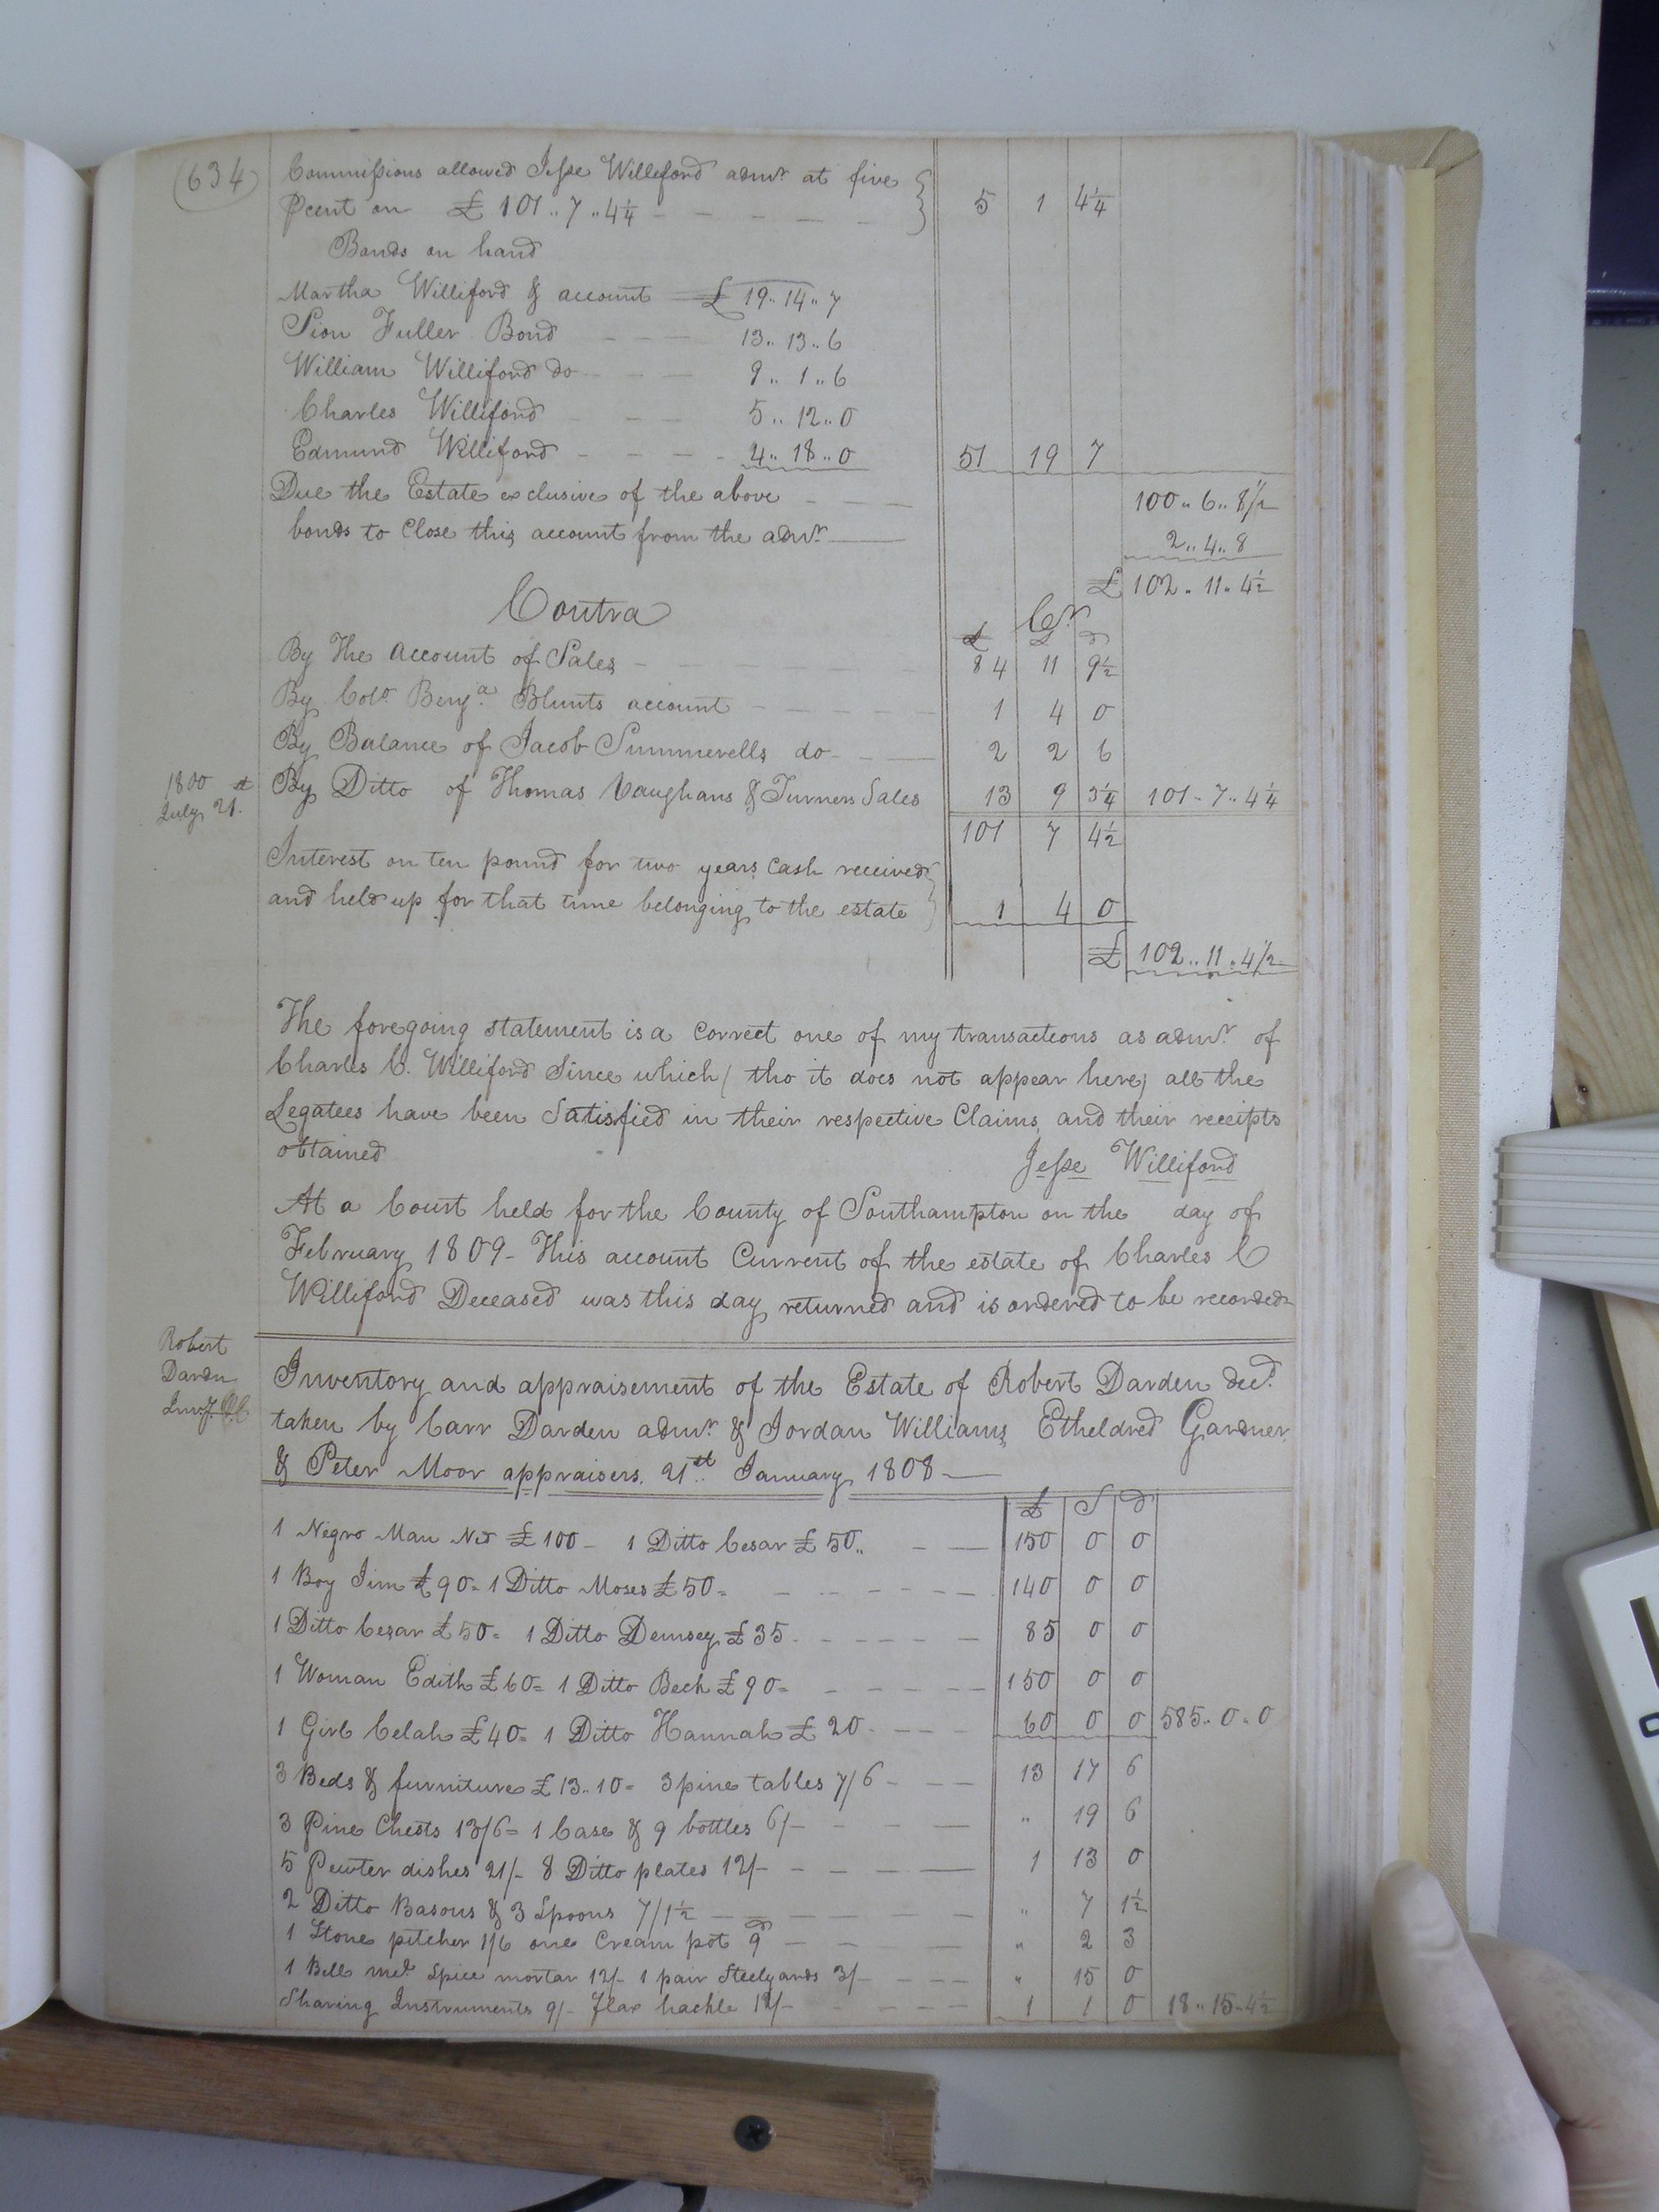 (634)
Commissions allowed Jesse Williford admr. at five
Pcent on £ 101..7..4¼ 5 1 4¼
Bonds on hand
Martha Williford & account £ 19..14..7
Sion Fuller Bond 13..13..6
William Williford do 9..1..6
Charles Williford 5..12..0
Edmund Williford 4..18..0 51 19 7
Due the Estate exclusive of the above 100..6..8½
bonds to Close this account from the admr. 2..4..8
£ 102..11..4½
Contra Cr.
£ S d
By The Account of Sales 84 11 9½
By Colo. Benja. Blunts account 1 4 0
By Balance of Jacob Summerells do 2 2 6
1800
July 21. By Ditto of Thomas Vaughans & Turners Sales 13 9 3¼ 101..7..4¼
101 7 4½
Interest on ten pound for two years Cash received
and held up for that time belonging to the estate 1 4 0
£ 102..11..4½
The foregoing statement is a correct one of my transactions as admr. of
Charles C. Williford Since which (tho it does not appear here) all the
Legatees have been Satisfied in their respective Claims and their receipts
obtained Jesse Williford
At a Court held for the County of Southampton on the day of
February 1809 - This account Current of the estate of Charles C
Williford Deceased was this day returned and is ordered to be recorded
Robert
Darden
Inventory and appraisement of the Estate of Robert Darden decd.
taken by Carr Darden admr. & Jordan Williams Etheldred Gardner
& Peter Moor appraisers. 21st January 1808
£ S d
1 Negro Man Ned £100 - 1 Ditto Cesar £50.. 150 0 0
1 Boy Jim £90 = 1 Ditto Moses £50 = 140 0 0
1 Ditto Cesar £50 = 1 Ditto Demsey £35 85 0 0
1 Woman Edith £60 = 1 Ditto Beck £90 = 150 0 0
1 Girl Celah £40 = 1 Ditto Hannah £20 60 0 0 585..0..0
3 Beds & furniture £13..10 = 3 pine tables 7/6 13 17 6
3 Pine Chests 13/6 = 1 Case & 9 bottles 6/- " 19 6
5 Pewter dishes 21/- 8 Ditto plates 12/- 1 13 0
2 Ditto Basons & 3 Spoons 7/1½ " 7 1½
1 Stone pitcher 1/6 one Cream pot 9d " 2 3
1 Bell met. Spice mortar 12/- 1 pair Steelyards 3/- " 15 0
Shaving Instruments 9/- Flax hackle 12/- 1 1 0 18..15..4½